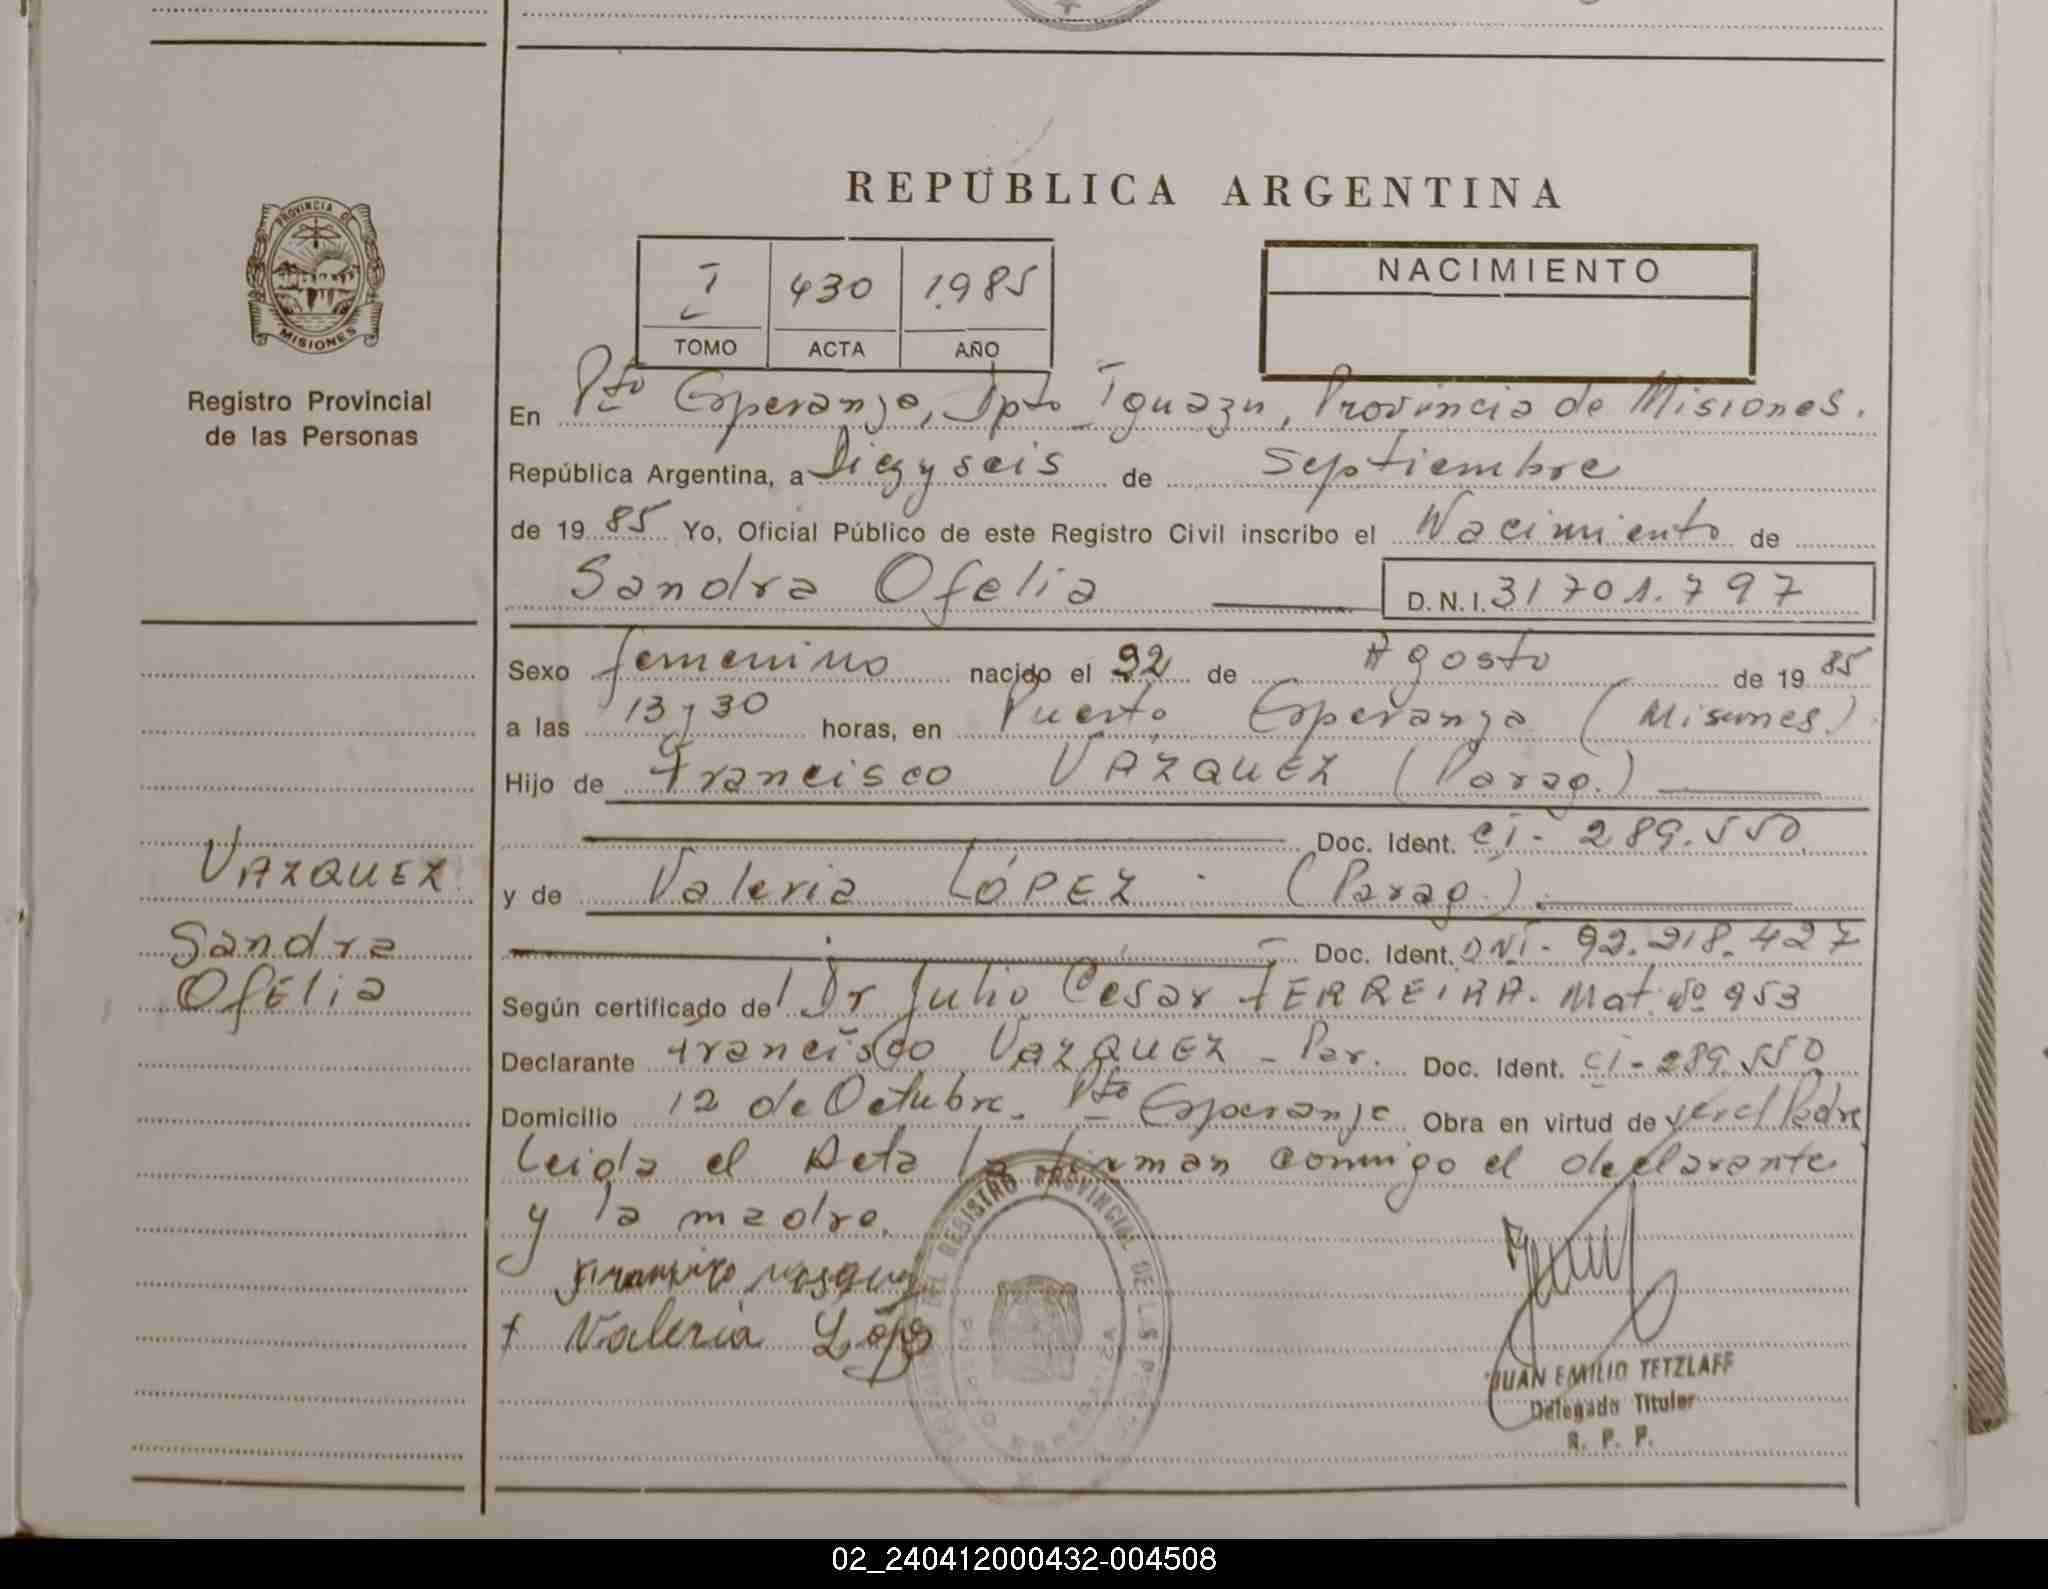 REPÚBLICA ARGENTINA
PROVINCIA DE
MISIONES
Registro Provincial
de las Personas
I 430 1985
TOMO ACTA AÑO
NACIMIENTO
En Pto Esperanza, Dpto Iguazu, Provincia de Misiones.
República Argentina, a Diez y seis de Septiembre
de 1985 Yo, Oficial Público de este Registro Civil inscribo el Nacimiento de
Sandra Ofelia D. N. I. 31701.797
Sexo femenino nacido el 22 de Agosto de 1985
a las 13 y 30 horas, en Puerto Esperanza (Misiones)
Hijo de Francisco VAZQUEZ (Parag.)
Doc. Ident. CI- 289.550
y de Valeria LÓPEZ. (Parag.).
Doc. Ident. DNI- 92.218.427
Según certificado del Dr Julio Cesar FERREIRA. Mat. Nº 953
Declarante Francisco VAZQUEZ - Par. Doc. Ident. CI- 289.550
Domicilio 12 de Octubre. Pto Esperanza Obra en virtud de ser el Padre
Leida el Acta la firman conmigo el declarante
y la madre.
VAZQUEZ
Sandra
Ofelia
Valeria López
REGISTRO PROVINCIAL DE LAS
JUAN EMILIO TETZLAFF
Delegado Titular
R. P. P.
02_240412000432-004508